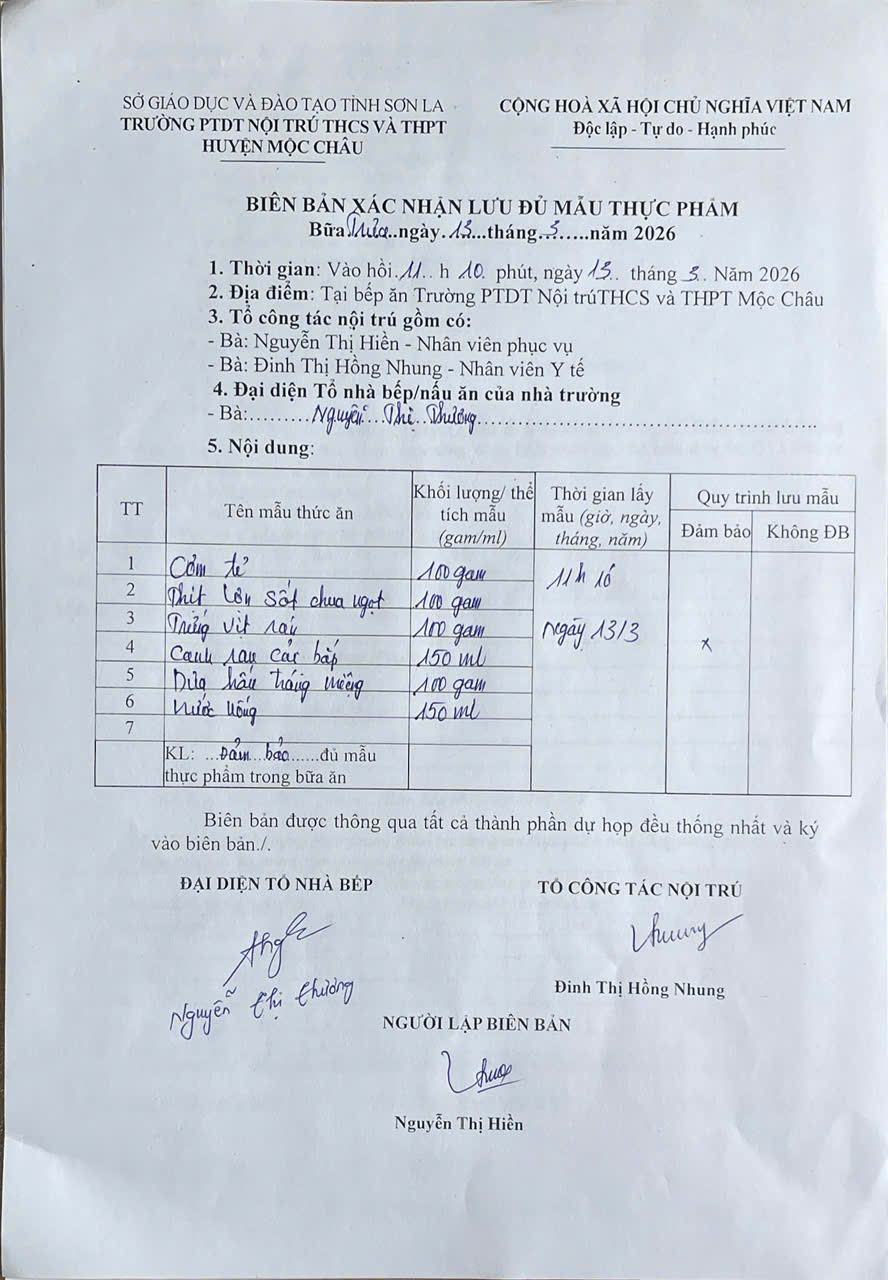 SỞ GIÁO DỤC VÀ ĐÀO TẠO TỈNH SƠN LA
TRƯỜNG PTDT NỘI TRÚ THCS VÀ THPT
HUYỆN MỘC CHÂU
CỘNG HOÀ XÃ HỘI CHỦ NGHĨA VIỆT NAM
Độc lập - Tự do - Hạnh phúc
BIÊN BẢN XÁC NHẬN LƯU ĐỦ MẪU THỰC PHẨM
Bữa Trưa..ngày.13...tháng.3.....năm 2026
1. Thời gian: Vào hồi.11.. h 10. phút, ngày 13.. tháng 3.. Năm 2026
2. Địa điểm: Tại bếp ăn Trường PTDT Nội trúTHCS và THPT Mộc Châu
3. Tổ công tác nội trú gồm có:
- Bà: Nguyễn Thị Hiền - Nhân viên phục vụ
- Bà: Đinh Thị Hồng Nhung - Nhân viên Y tế
4. Đại diện Tổ nhà bếp/nấu ăn của nhà trường
- Bà:.........Nguyễn...Thị..Thương....................................................
5. Nội dung:
TT Tên mẫu thức ăn Khối lượng/ thể tích mẫu (gam/ml) Thời gian lấy mẫu (giờ, ngày, tháng, năm) Quy trình lưu mẫu
Đảm bảo Không ĐB
1 Cơm tẻ 100 gam 11h 10
2 Thịt lợn sốt chua ngọt 100 gam
3 Trứng vịt 100 gam Ngày 13/3
4 Canh rau cải bắp 150 ml x
5 Dưa hấu tráng miệng 100 gam
6 Nước uống 150 ml
7
KL: ...Đảm...bảo......đủ mẫu
thực phẩm trong bữa ăn
Biên bản được thông qua tất cả thành phần dự họp đều thống nhất và ký
vào biên bản./.
ĐẠI DIỆN TỔ NHÀ BẾP
TỔ CÔNG TÁC NỘI TRÚ
Nguyễn thị thương
Đinh Thị Hồng Nhung
NGƯỜI LẬP BIÊN BẢN
Nguyễn Thị Hiền